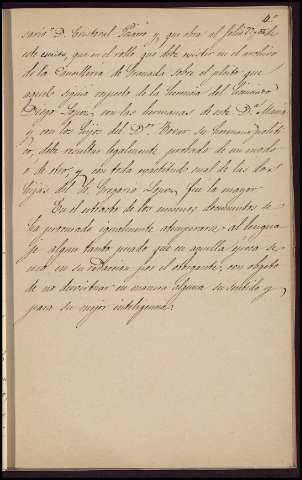 4º
sario D. Cristoval Bravo y, que obra al folio 77 de
este escrito, que en el rollo que debe existir en el archivo
de la Chancilleria de Granada sobre el pleito que
aquel siguió respecto de la herencia del Licenciado
Diego Lopez, con las hermanas de este Dª Maria
y con los hijos del Dor. Tovar su hermano politi
co, debe resultar legalmente probado de un modo
ó de otro, y con toda exactitud, cual de las dos
hijas del S. Gregorio Lopez, fue la mayor.
En el extracto de los mismos documentos se
ha procurado igualmente atemperarse al lengua
je algun tanto pesado que en aquella época se
usó en su redaccion por el otorgante, con objeto
de no desvirtuar en manera alguna su sentido y
para su mejor inteligencia.